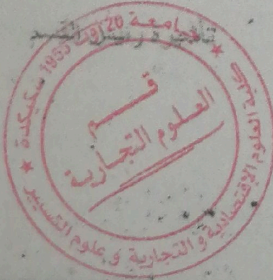 جامعة 20 أوت 1955 سكيكدة
كلية العلوم الإقتصادية و التجارية و علوم التسيير
قسم
العلوم التجارية